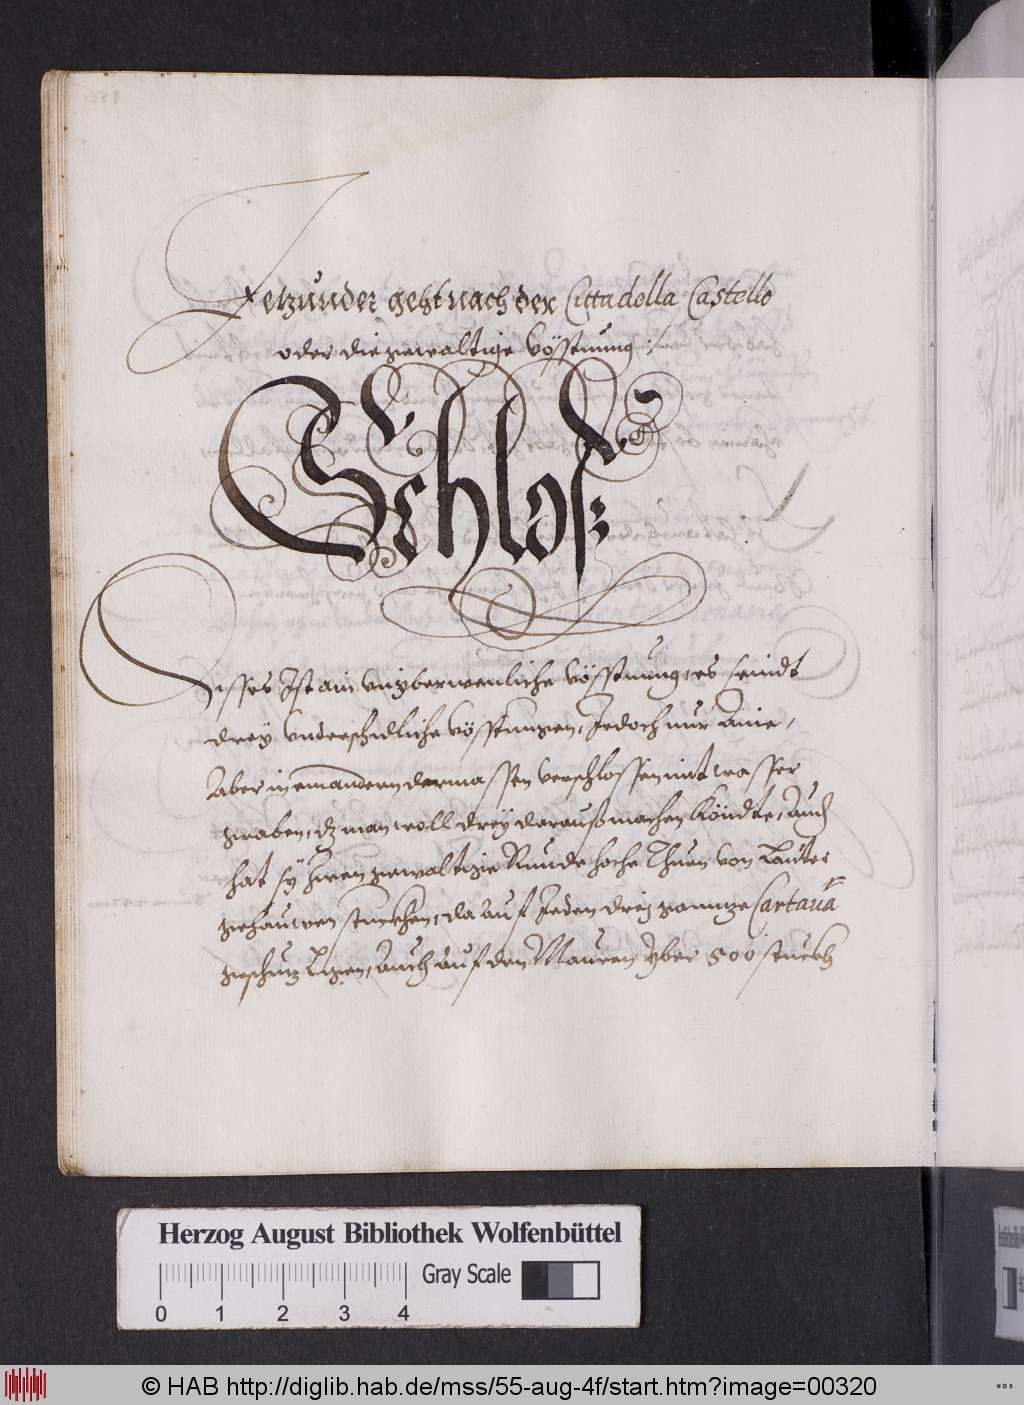 Jetzunder geht nach der Cittadella Castello
oder die gewaltige vösstung :/
Schloß
Disses Ist ain vnyberwenliche vösstung, es seindt
drey vnderschidliche vösstungen, Jedoch nur Aine,
Aber in einandern dermassen verschlossen mit wasser
graben, dz man woll drey darauß machen köndte, Auch
hat sy zwen gewaltige Runde hohe Thurn von Lauter
gehauwen stuckhen, da auf Jeden drey gannze Cartauā
geschuz ligen, Auch auf den Mauren yber 500 stuckh
Herzog August Bibliothek Wolfenbüttel
Gray Scale
0 1 2 3 4
© HAB http://diglib.hab.de/mss/55-aug-4f/start.htm?image=00320